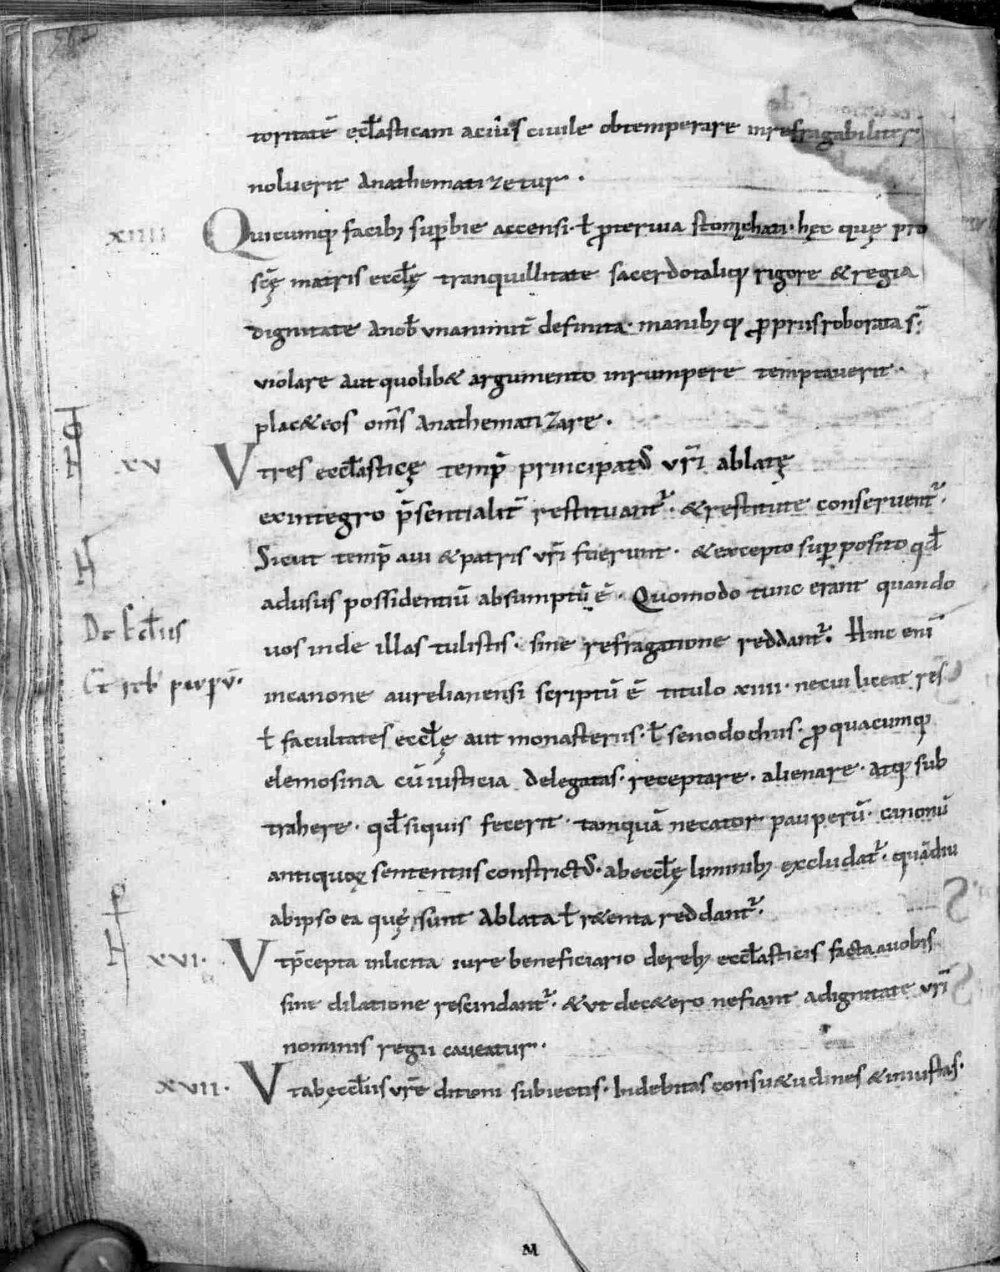 toritatē eccl̄asticam aciuīs ciuile obtemperare inrefragabiliter
noluerit Anathematizetur .
xiiii Quicumq; facib; sup̱bie accensi . ł ꝓterua stomachati . hęc quę pro
scę̄ matris eccl̄ę tranquillitate sacerdotaliq; rigore & regia
dignitate Anob̄ unanimit̄ definita . manib; q; ꝓpriis roborata s̄ .
violare aut quolib& argumento inrumpere temptauerit .
plac& eos om̄s Anathematizare .
xv Vt res eccl̄asticę temp̄ principatꝰ ur̄i ablatę
exintegro p̄sentialit̄ restituant̄ . & restitute conseruent̄ .
Sicut temp̄ aui & patris ur̄i fuerunt . & excepto sup̱posito qd̄
adusus possidentiū absumptū ē . Quomodo tunc erant quando
De Ecl̄iis
uos inde illas tulistis . sine refragatione reddant̄ . Hinc eni̅
incanone aurelianensi scriptū ē titulo xiiii . necui liceat res̄
ł facultates eccl̄ę aut monasteriis . ł senodochiis . ꝓ quacumq;
elemosina cū iusticia delegatas . receptare . alienare . atq; sub
trahere . qd̄ siquis fecerit . tamquā necator pauperū . canonū
antiquoꝝ sententiis constrictꝰ . ab eccl̄ę liminib; excludat̄ . quādiu
abipso ea quę sunt Ablata ł r&enta reddant̄ .
xvi . Vt p̄cepta inlicita iure beneficiario dereb; eccl̄asticis facta auobis
sine dilatione rescindant̄ . & ut dec&ero nefiant adignitate ur̄i
nominis regii caueatur .
xvii . Vt abęccl̄iis ur̄e ditioni subiectis . Indebitas consu&udines & iniustas .
M